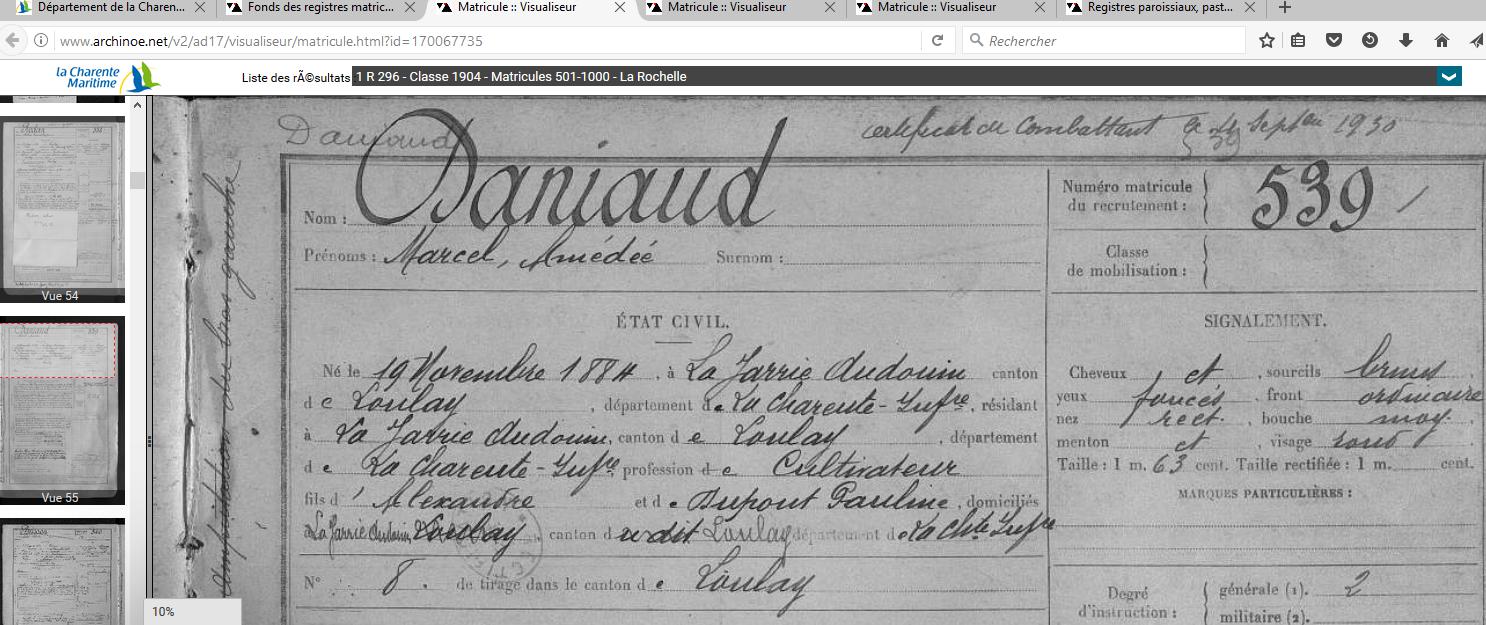 Département de la Charen... × Fonds des registres matric... × Matricule :: Visualiseur × Matricule :: Visualiseur × Matricule :: Visualiseur × Registres paroissiaux, past... × +
www.archinoe.net/v2/ad17/visualiseur/matricule.html?id=170067735 Rechercher
la Charente Maritime Liste des rÃ©sultats 1 R 296 - Classe 1904 - Matricules 501-1000 - La Rochelle
Vue 54
Vue 55
10%
Amputation du bras gauche
Daniaud certificat de Combattant Septbre 1930
Nom : Daniaud
Prénoms : Marcel, Amédée Surnom :
Numéro matricule du recrutement : 539
Classe de mobilisation :
ÉTAT CIVIL.
Né le 19 Novembre 1884, à La Jarrie Audouin canton
de Loulay, département de La Charente-Infre, résidant
à La Jarrie Audouin, canton de Loulay, département
de La Charente-Infre profession de Cultivateur
fils d'Alexandre et de Dupont Pauline, domiciliés
à La Jarrie Audouin Loulay canton dudit Loulay département de La Chte Infre
N° 8. de tirage dans le canton de Loulay
SIGNALEMENT.
Cheveux et, sourcils bruns,
yeux foncés, front ordinaire
nez rect., bouche moy.,
menton et, visage rond
Taille : 1 m. 63 cent. Taille rectifiée : 1 m. cent.
MARQUES PARTICULIÈRES :
Degré d'instruction : générale (1). 2
militaire (2).